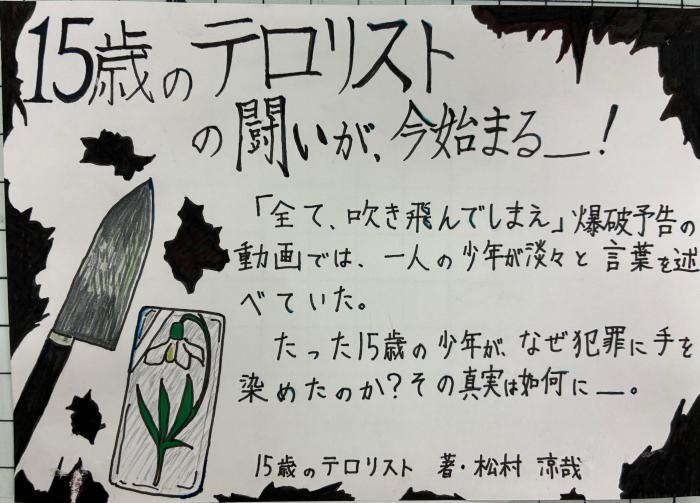 15歳のテロリスト
の闘いが、今始まる__!
「全て、吹き飛んでしまえ」爆破予告の
動画では、一人の少年が淡々と言葉を述
べていた。
たった15歳の少年が、なぜ犯罪に手を
染めたのか?その真実は如何に__。
15歳のテロリスト 著・松村 涼哉